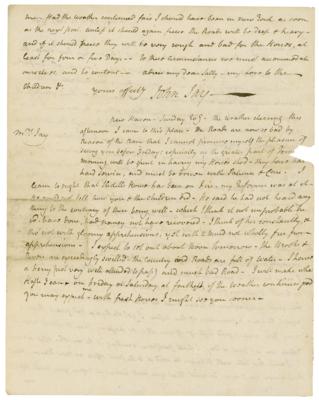 me. Had the weather continued fair I should have been in New York as soon
as the next post. unless it should again freeze the Roads will be deep & heavy
and if it should freeze they will be very rough and bad for the Horses, at
least for four or five Days — To these Circumstances we must accommodate
ourselves and be content — adieu my Dear Sally — my love to the
children &c
yours affecty John Jay
New Haven — Sunday Evg — the weather clearing this
Mrs. Jay
afternoon I came to this place — The Roads are now so bad by
Reason of the rain that I cannot promise myself the pleasure of
seeing you before Friday; especially as the greater part of
morning will be spent in having my Horses shod — they have had
hard service, and must be driven with Patience & Care. I
learn to night that House has been on fire — my Informer was
not tell how you & the children did. He said he had not heard any
thing to the contrary of their being well — which I think is not improbable
have done, had money not have recovered — I think of him constantly, &
tho not with gloomy apprehensions, yet with a mind not wholly free from
apprehension — I expect to set out about Noon tomorrow — the Brooks &
Rivers are exceedingly swelled — the Country Roads are full of water — I have
a ferry (not very well attended to) pass, and much bad Road — I will make what
Haste I can & on Friday or Saturday at farthest, if the weather continues good
you may expect me — with fresh Horses I might see you sooner —